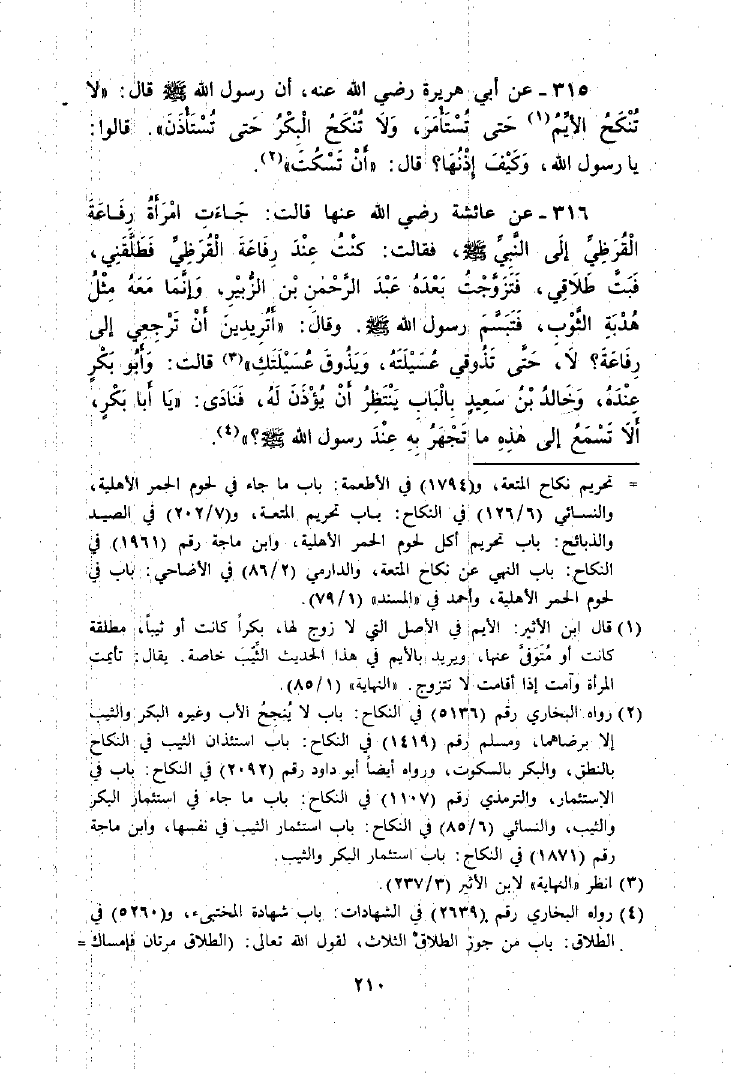 ٣١٥ - عن أبي هريرة رضي الله عنه، أن رسول الله ﷺ قال: «لا
تُنْكَحُ الأَيِّمُ(١) حَتى تُسْتَأْمَرَ، وَلَا تُنْكَحُ الْبِكْرُ حَتى تُسْتَأْذَنَ». قالوا:
يا رسول الله، وَكَيْفَ إِذْنُهَا؟ قال: «أَنْ تَسْكُتَ»(٢).
٣١٦ - عن عائشة رضي الله عنها قالت: جَاءَتِ امْرَأَةُ رِفَاعَةَ
الْقُرَظِيِّ إِلَى النَّبِيِّ ﷺ، فقالت: كنْتُ عِنْدَ رِفَاعَةَ الْقُرَظِيِّ فَطَلَّقَنِي،
فَبَتَّ طَلَاقِي، فَتَزَوَّجْتُ بَعْدَهُ عَبْدَ الرَّحْمٰنِ بْنَ الزَّبِيرِ، وَإِنَّمَا مَعَهُ مِثْلُ
هُدْبَةِ الثَّوْبِ، فَتَبَسَّمَ رسول الله ﷺ. وقالَ: «أَتُرِيدِينَ أَنْ تَرْجِعِي إلى
رِفَاعَةَ؟ لَا، حَتَّى تَذُوقِي عُسَيْلَتَهُ، وَيَذُوقَ عُسَيْلَتَكِ»(٣) قالت: وَأَبُو بَكْرٍ
عِنْدَهُ، وَخَالِدُ بْنُ سَعِيدٍ بِالْبَابِ يَنْتَظِرُ أَنْ يُؤْذَنَ لَهُ، فَنَادَى: «يَا أَبا بَكْرٍ،
أَلَا تَسْمَعُ إلى هٰذِهِ ما تَجْهَرُ بِهِ عِنْدَ رسول الله ﷺ؟»(٤).
= تحريم نكاح المتعة، و(١٧٩٤) في الأطعمة: باب ما جاء في لحوم الحمر الأهلية،
والنسائي (١٢٦/٦) في النكاح: باب تحريم المتعة، و(٢٠٢/٧) في الصيد
والذبائح: باب تحريم أكل لحوم الحمر الأهلية، وابن ماجة رقم (١٩٦١) في
النكاح: باب النهي عن نكاح المتعة، والدارمي (٨٦/٢) في الأضاحي: باب في
لحوم الحمر الأهلية، وأحمد في «المسند» (٧٩/١).
(١) قال ابن الأثير: الأيم في الأصل التي لا زوج لها، بكراً كانت أو ثيباً، مطلقة
كانت أو مُتَوَفَّىً عنها، ويريد بالأيم في هذا الحديث الثَّيِّبَ خاصة. يقال: تأيمت
المرأة وآمت إذا أقامت لا تتزوج. «النهاية» (٨٥/١).
(٢) رواه البخاري رقم (٥١٣٦) في النكاح: باب لا يُنكِحُ الأب وغيره البكر والثيب
إلا برضاهما، ومسلم رقم (١٤١٩) في النكاح: باب استئذان الثيب في النكاح
بالنطق، والبكر بالسكوت، ورواه أيضاً أبو داود رقم (٢٠٩٢) في النكاح: باب في
الاستئمار، والترمذي رقم (١١٠٧) في النكاح: باب ما جاء في استئمار البكر
والثيب، والنسائي (٨٥/٦) في النكاح: باب استئمار الثيب في نفسها، وابن ماجة
رقم (١٨٧١) في النكاح: باب استئمار البكر والثيب.
(٣) انظر «النهاية» لابن الأثير (٢٣٧/٣).
(٤) رواه البخاري رقم (٢٦٣٩) في الشهادات: باب شهادة المختبىء، و(٥٢٦٠) في
الطلاق: باب من جوز الطلاق الثلاث، لقول الله تعالى: (الطلاق مرتان فإمساك =
٢١٠